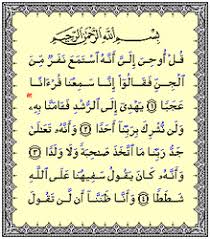 بِسْمِ اللَّهِ الرَّحْمَٰنِ الرَّحِيمِ
قُلْ أُوحِيَ إِلَيَّ أَنَّهُ ٱسْتَمَعَ نَفَرٌ مِّنَ
ٱلْجِنِّ فَقَالُوٓا۟ إِنَّا سَمِعْنَا قُرْءَانًا
عَجَبًا ١ يَهْدِىٓ إِلَى ٱلرُّشْدِ فَـَٔامَنَّا بِهِۦ
وَلَن نُّشْرِكَ بِرَبِّنَآ أَحَدًا ٢ وَأَنَّهُۥ تَعَٰلَىٰ
جَدُّ رَبِّنَا مَا ٱتَّخَذَ صَٰحِبَةً وَلَا وَلَدًا ٣
وَأَنَّهُۥ كَانَ يَقُولُ سَفِيهُنَا عَلَى ٱللَّهِ
شَطَطًا ٤ وَأَنَّا ظَنَنَّآ أَن لَّن تَقُولَ